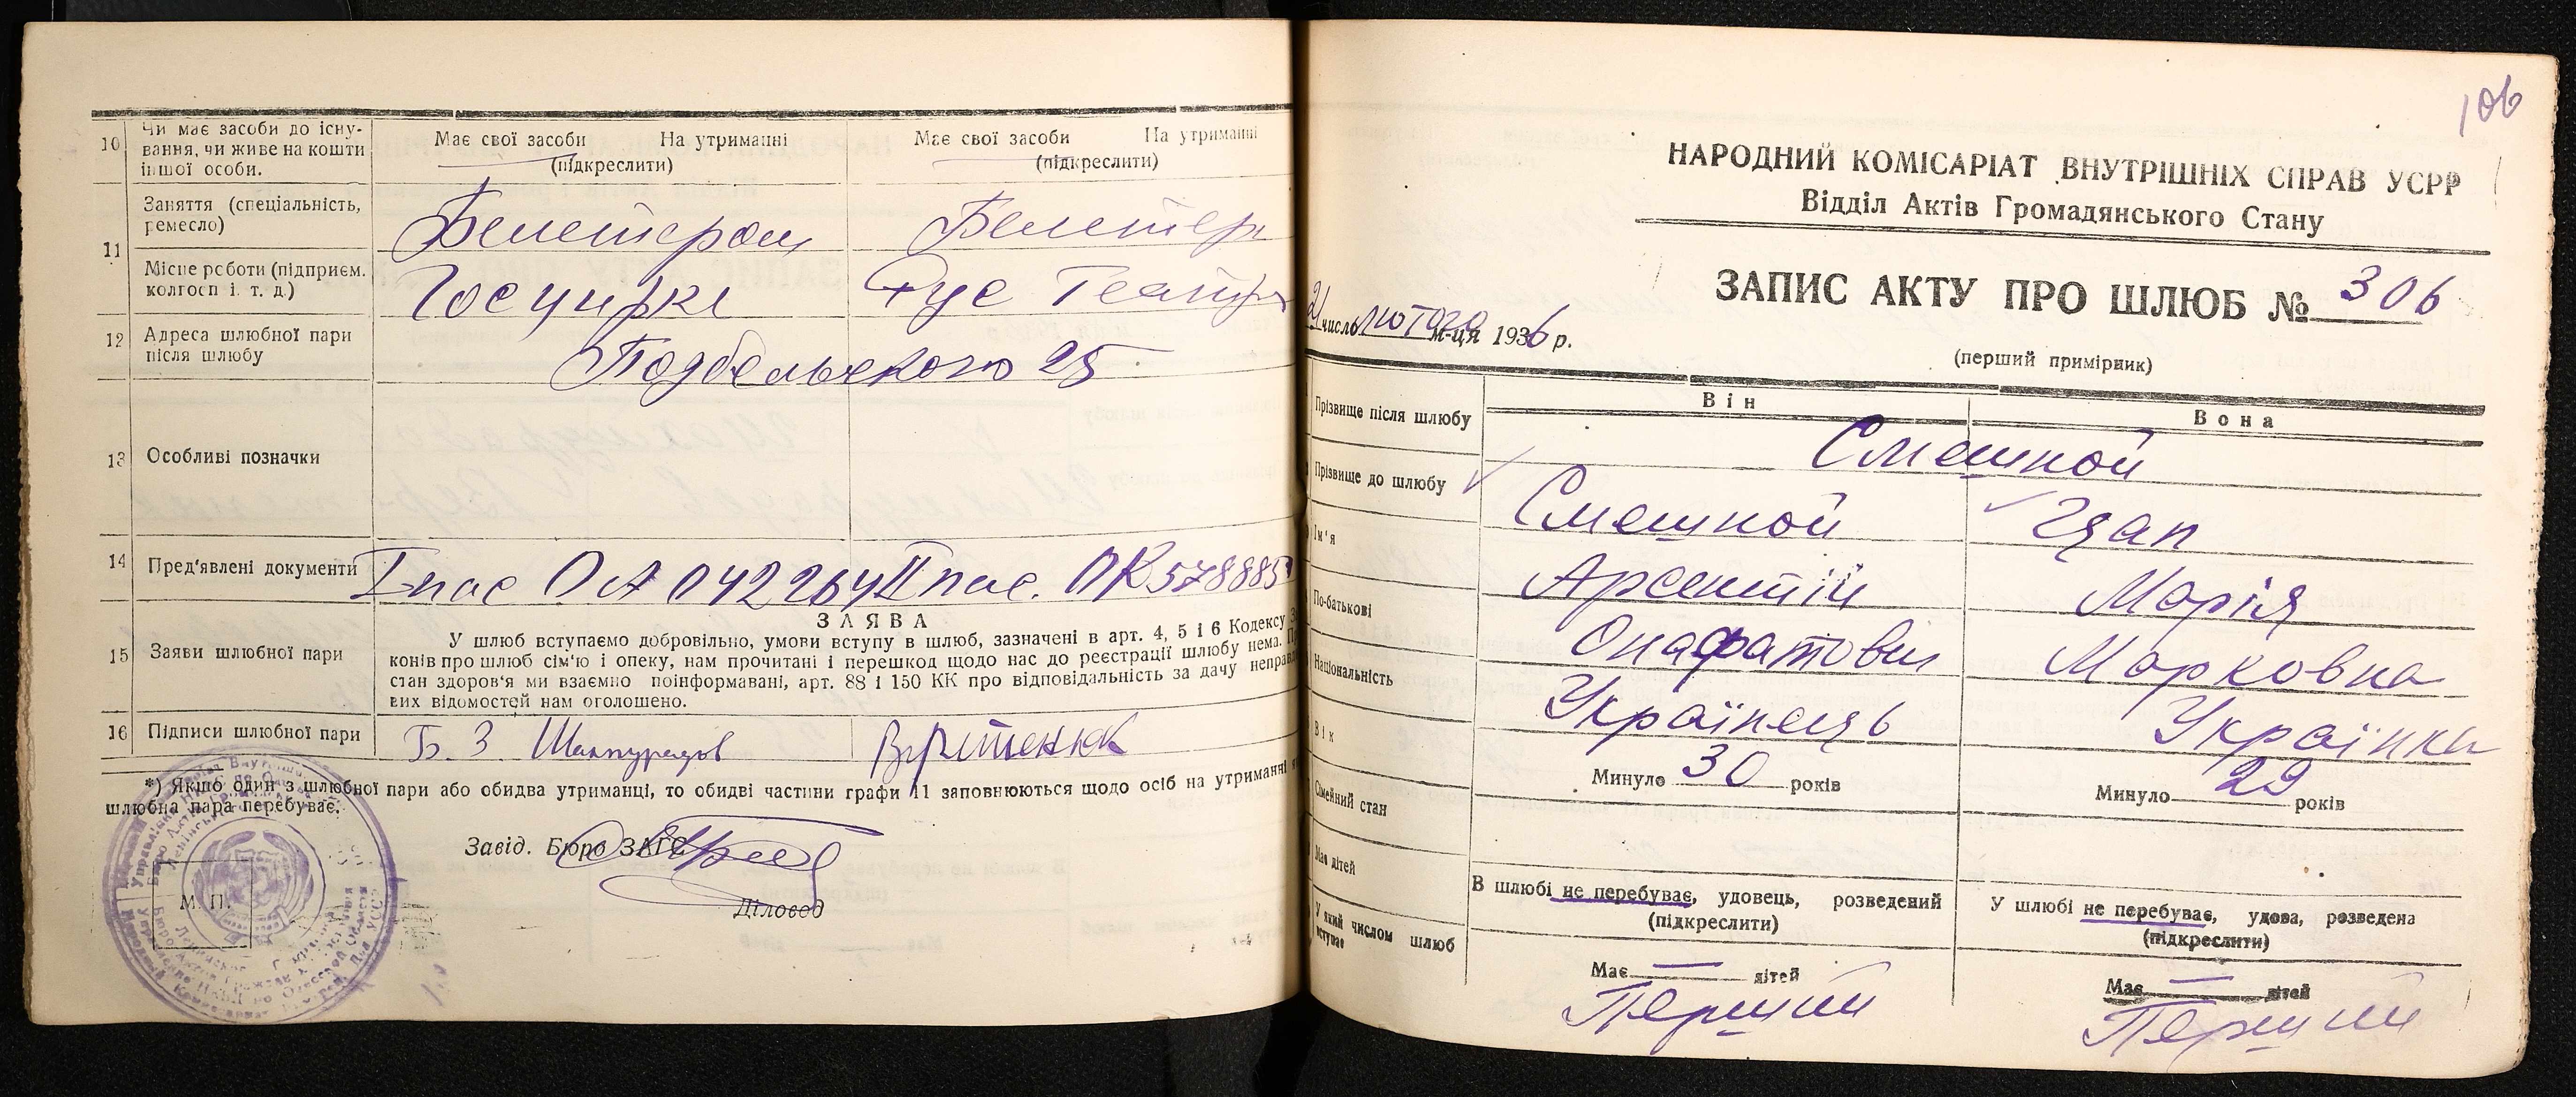 10
Чи має засоби до існу-
вання, чи живе на кошти
іншої особи.
Має свої засоби На утриманні
(підкреслити)
Має свої засоби На утриманні
(підкреслити)
11
Заняття (спеціальність,
ремесло)
Білетером
Білетер
Місце роботи (підприєм.
колгосп і. т. д.)
Госцирк
Рус Театр
12
Адреса шлюбної пари
після шлюбу
Подбельского 25
13
Особливі позначки
14
Пред'явлені документи
I-пас ОА 042264 II пас. ПК 578885
15
Заяви шлюбної пари
ЗАЯВА
У шлюб вступаємо добровільно, умови вступу в шлюб, зазначені в арт. 4, 5 і 6 Кодексу
конів про шлюб сім'ю і опеку, нам прочитані і перешкод щодо нас до реєстрації шлюбу нема.
стан здоров'я ми взаємно поінформавані, арт. 88 і 150 КК про відповідальність за дачу неправ
вих відомостей нам оголошено.
16
Підписи шлюбної пари
Б. З
*) Якщо один з шлюбної пари або обидва утриманці, то обидві частини графи 11 заповнюються щодо осіб на утриманні
шлюбна пара перебуває.
Завід. Бюро ЗАГС
Діловод
М. П.
106
НАРОДНИЙ КОМІСАРІАТ ВНУТРІШНІХ СПРАВ УСРР
Відділ Актів Громадянського Стану
ЗАПИС АКТУ ПРО ШЛЮБ № 306
21 число лютого м-ця 1936 р.
(перший примірник)
Він
Вона
Прізвище після шлюбу
Смешной
Прізвище до шлюбу
Смешной
Цап
Ім'я
Арсентій
Марія
По-батькові
Онафатович
Марковна
Національність
Українець
Українка
Вік
Минуло 30 років
Минуло 29 років
Сімейний стан
В шлюбі не перебуває, удовець, розведений
(підкреслити)
У шлюбі не перебуває, удова, розведена
(підкреслити)
Має дітей
Має — дітей
Має — дітей
У який числом шлюб
вступає
Перший
Перший